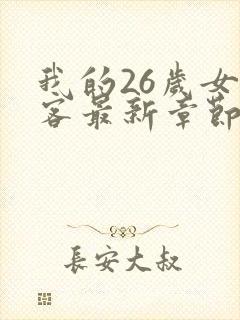 我的26歲女
客最新章節
長安大叔